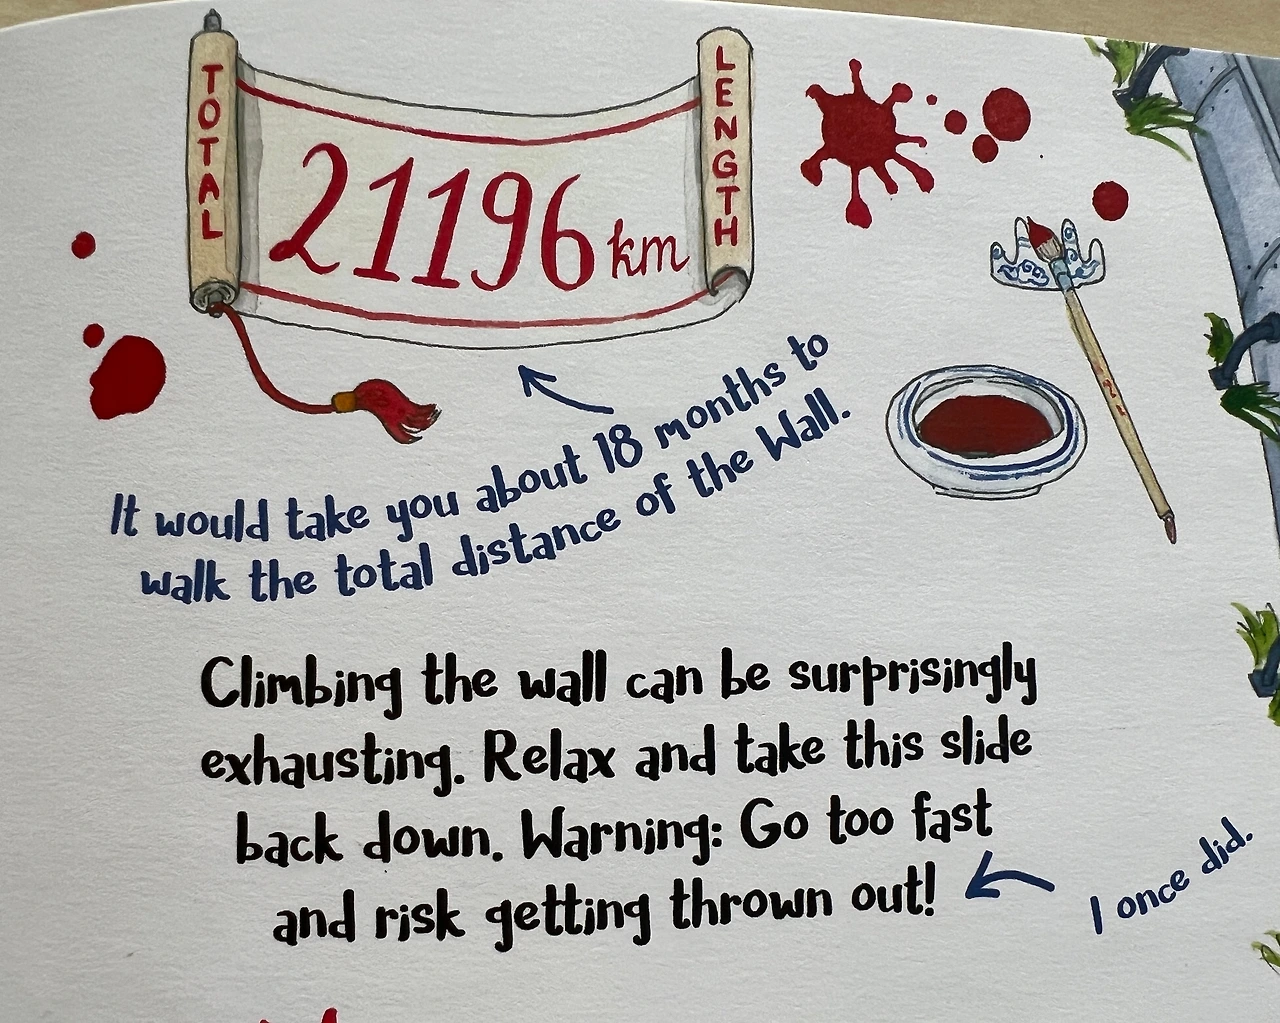 TOTAL
LENGTH
21196 km
It would take you about 18 months to
walk the total distance of the Wall.
Climbing the wall can be surprisingly
exhausting. Relax and take this slide
back down. Warning: Go too fast
and risk getting thrown out!
I once did.